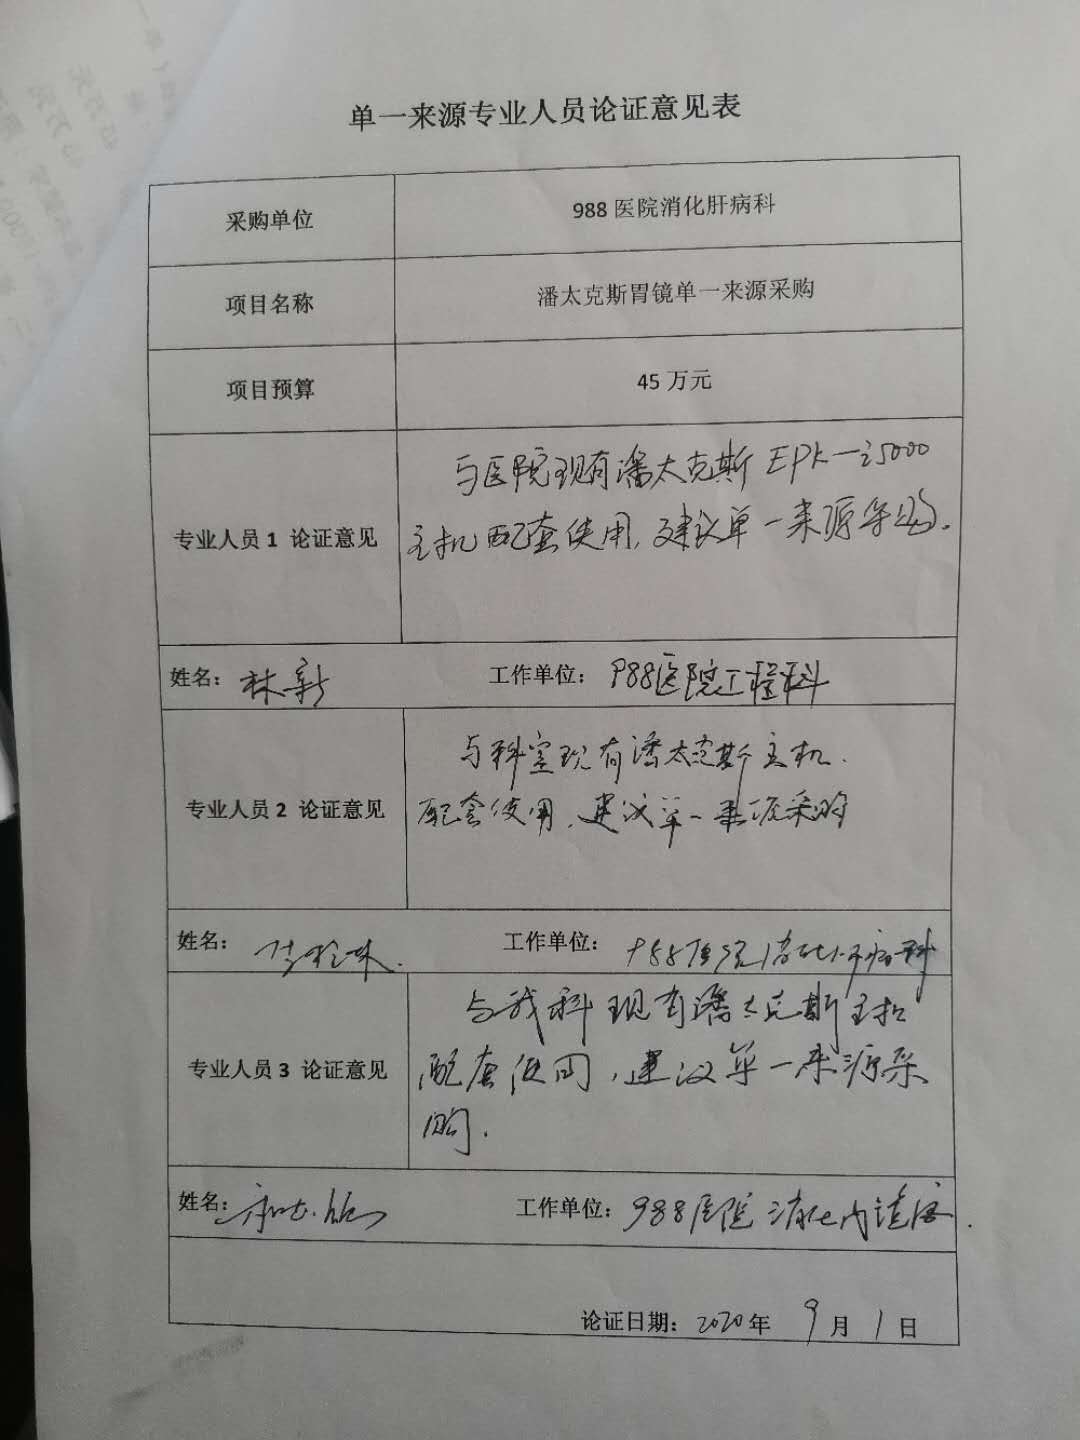 单一来源专业人员论证意见表
采购单位
988医院消化肝病科
项目名称
潘太克斯胃镜单一来源采购
项目预算
45万元
专业人员1 论证意见
与医院现有潘太克斯 EPK-i5000
主机配套使用，建议单一来源采购。
姓名：林新
工作单位：988医院工程科
专业人员2 论证意见
与科室现有潘太克斯主机
配套使用，建议单一来源采购
姓名：
工作单位：988医院消化肝病科
专业人员3 论证意见
与我科现有潘太克斯主机
配套使用，建议单一来源采
购.
姓名：
工作单位：988医院消化内镜室
论证日期：2020年 9月 1日